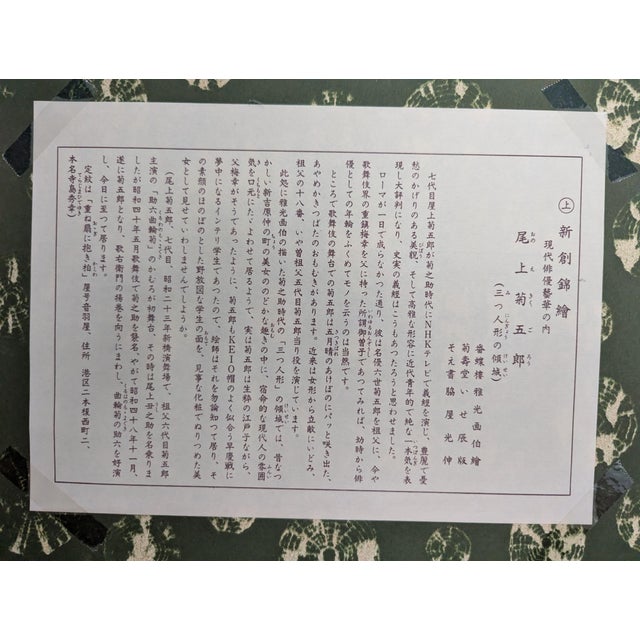 ㊤ 新創錦繪
現代俳優藝華の内
尾上菊五郎
(三つ人形の傾城)
香蝶樓雅光画伯繪
菊壽堂いせ辰版
そえ書 脇屋光伸
七代目尾上菊五郎が菊之助時代にNHKテレビで義経を演じ、豊麗で憂
愁のかげりのある美貌、そして高雅な形容に近代青年的で純な一本気を表
現し大評判になり、史実の義経はこうもあつたろうと思わせました。
ローマが一日で成らなかった通り、彼は名優六世菊五郎を祖父に、今や
歌舞伎界の重鎮梅幸を父に持つた所謂御曽子であつてみれば、幼時から俳
優としての年輪をふくめてモノを云うのは当然です。
ところで歌舞伎の舞台での菊五郎は五月晴のあけぼのにパッと咲き出た、
あやめかきつばたのおもむきがあります。近来は女形から立敵にいどみ、
祖父の十八番、いや曽祖父五代目菊五郎当り役を演じています。
此処に雅光画伯の描いた菊之助時代の「三つ人形」の傾城では、昔なつ
かしい新吉原仲の町の美女ののどかな趣きの中に、宿命的な現代人の雰囲
気を口元にたゞよわせて居るようで、実は菊五郎は生粋の江戸子ながら、
父梅幸がそうであったように、菊五郎もKEIO帽のよく似合う早慶戦に
夢中になるインテリ学生であつたので、絵師はそれを勿論知つて居り、そ
の素顔のほのぼのとした野放図な学生の面を、見事な化粧でぬりつめた美
女として見せていわしませんでしようか。
(尾上菊五郎、七代目、昭和二十三年新橋演舞場で、祖父六代目菊五郎
主演の「助六曲輪菊」のかむろが初舞台、その時は尾上丑之助を名乗りま
したが昭和四十年五月歌舞伎で菊之助を襲名、やがて昭和四十八年十一月、
遂に菊五郎となり、歌右衛門の揚巻を向うにまわし、曲輪菊の助六を好演
し、今日に至つて居ります。
定紋は「重ね扇に抱き柏」、屋号音羽屋、住所 港区二本榎西町二、
本名寺島秀幸)